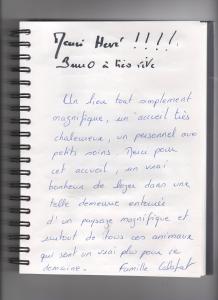 Merci Hervé !!!!
Bravo à très vite
Un lieu tout simplement
magnifique, un accueil très
chaleureux, un personnel aux
petits soins. Merci pour
cet accueil, un vrai
bonheur de loger dans une
telle demeure entourée
d'un paysage magnifique et
surtout de tous ces animaux
qui sont un vrai plus pour ce
domaine. Famille